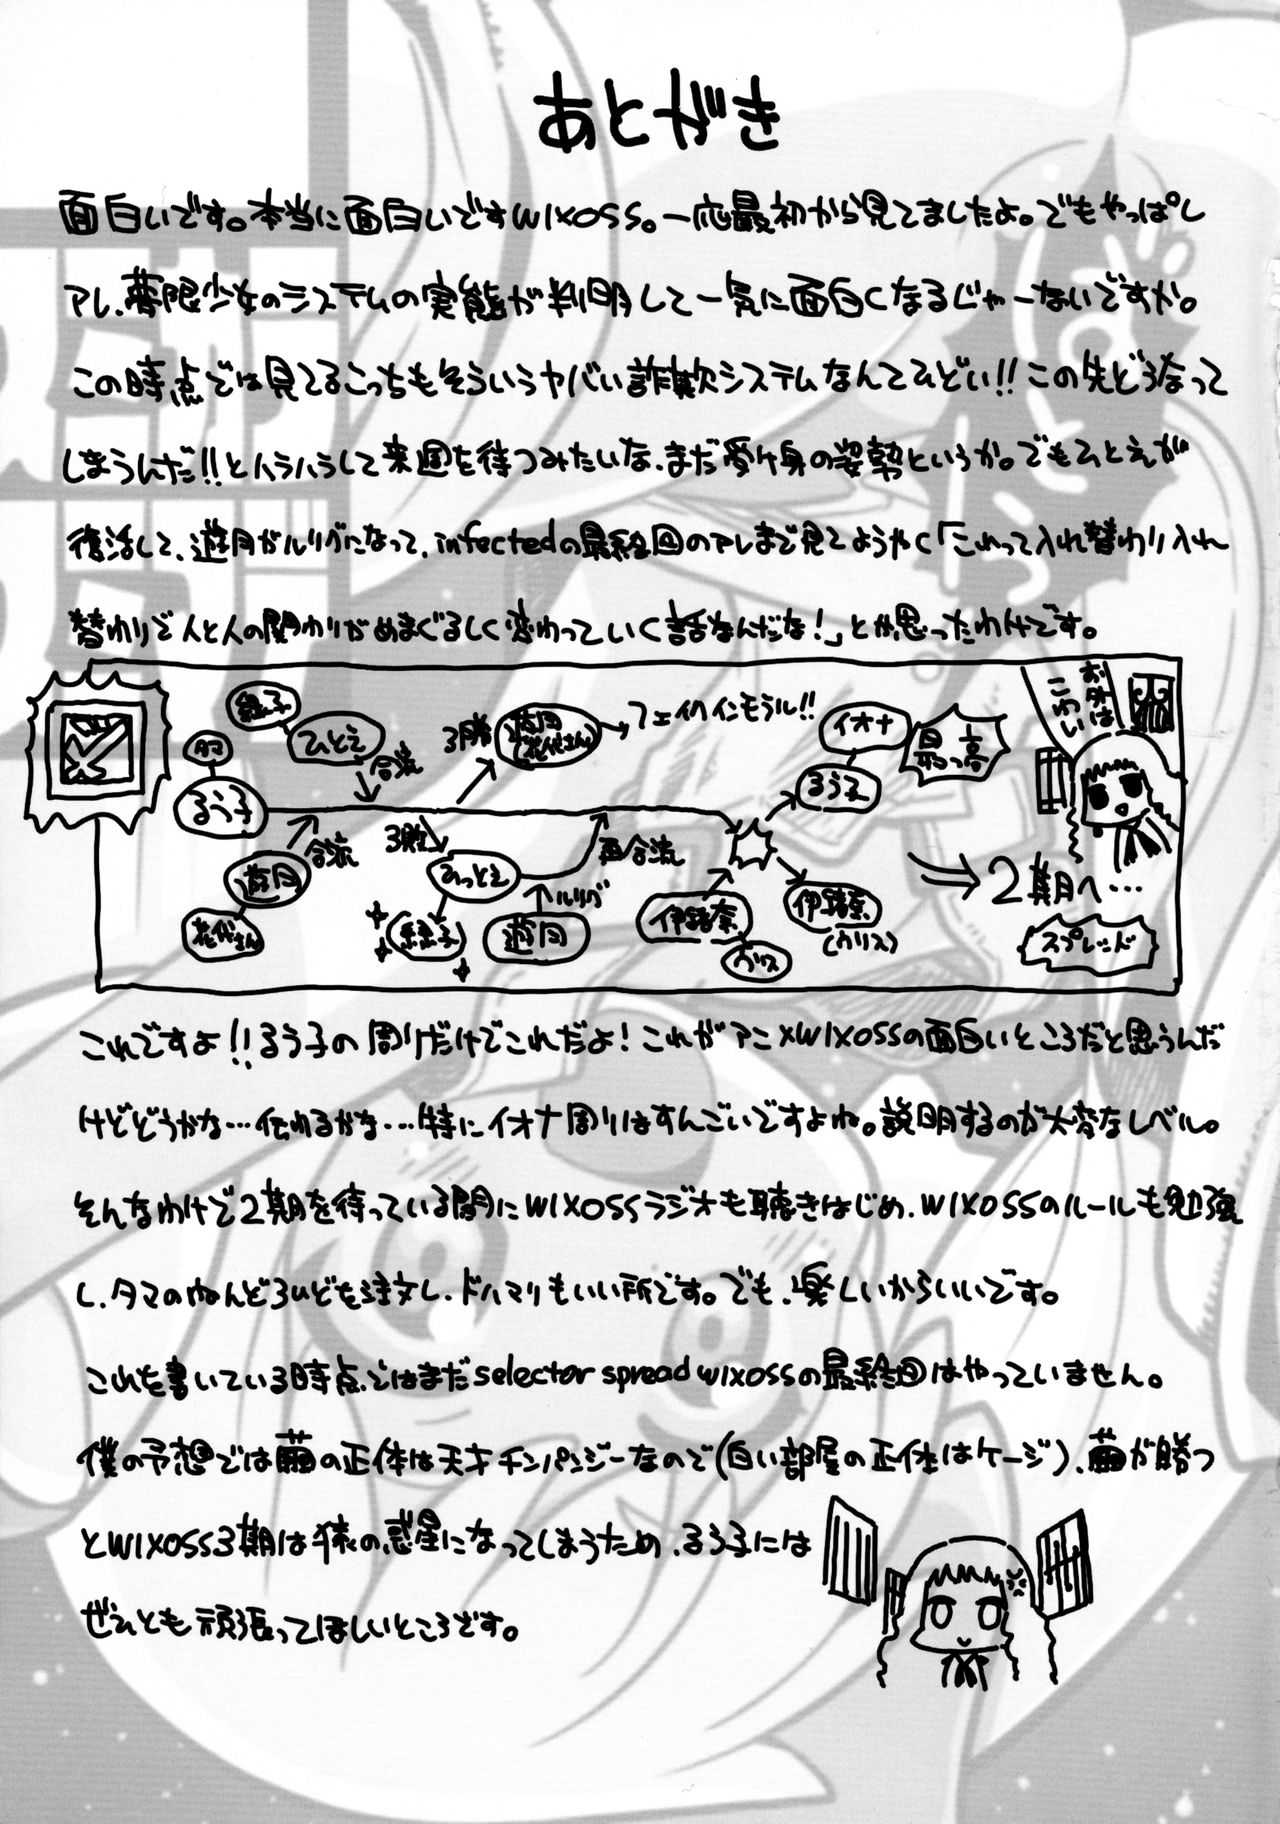 あとがき
面白いです。本当に面白いですWIXOSS。一応最初から見てましたよ。でもやっぱし
アレ、夢限少女のシステムの実態が判明して一気に面白くなるじゃーないですか。
この時点では見てるこっちもそういうヤバい詐欺システムなんてひどい!!この先どうなって
しまうんだ!!とハラハラして来週を待つみたいな、まだ受け身の姿勢というか。でもひとえが
復活して、遊月がルリグになって、infectedの最終回のアレまで見てようやく「これって入れ替わり入れ
替わりで人と人の関わりがめまぐるしく変わっていく話なんだな!」とか思ったわけです。
タマ
るう子
緑子
ひとえ
合流
花代さん
遊月
合流
3勝
遊月
(花代さん)
フェイクインモラル!!
3敗
ひとえ
緑子
遊月
ルリグ
再合流
伊緒奈
ウリス
伊緒奈
(ウリス)
イオナ
るう子
最っ高
お外は
こわい
2期へ…
スプレッド
これですよ!!るう子の周りだけでこれだよ!これがアニメWIXOSSの面白いところだと思うんだ
けどどうかな…伝わるかな…特にイオナ周りはすんごいですよね。説明するのが大変なレベル。
そんなわけで2期を待っている間にWIXOSSラジオも聴きはじめ、WIXOSSのルールも勉強
し、タマのねんどろいどを注文し、ドハマリもいい所です。でも、楽しいからいいです。
これを書いている時点ではまだselector spread wixossの最終回はやっていません。
僕の予想では繭の正体は天才チンパンジーなので(白い部屋の正体はケージ)、繭が勝つ
とWIXOSS3期は猿の惑星になってしまうため、るう子には
ぜひとも頑張ってほしいところです。